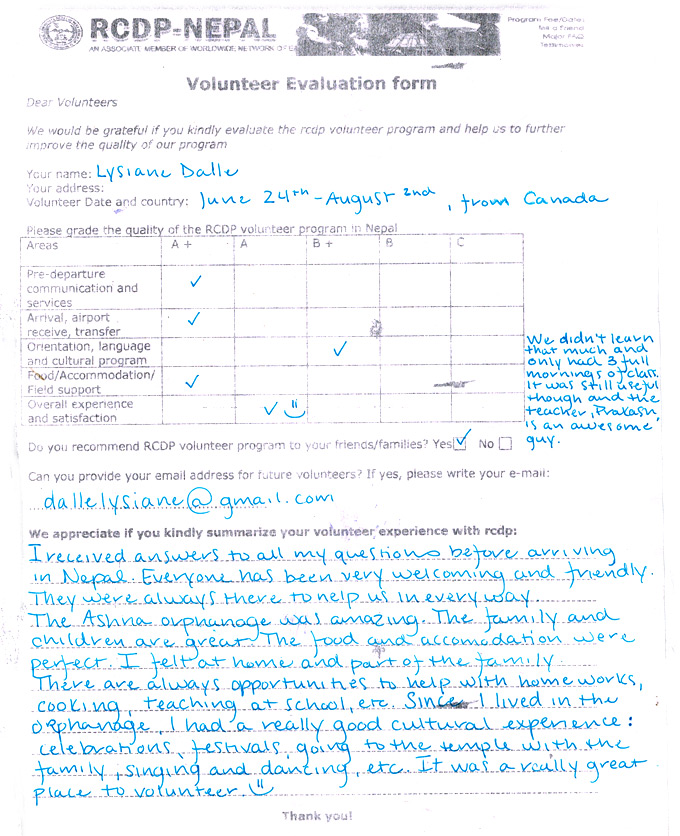 RCDP-NEPAL
AN ASSOCIATE MEMBER OF WORLDWIDE NETWORK OF
Program Fee/Dates
Major FAQ
Testimonies
Volunteer Evaluation form
Dear Volunteers
We would be grateful if you kindly evaluate the rcdp volunteer program and help us to further
improve the quality of our program
Your name: Lysiane Dalle
Your address:
Volunteer Date and country: June 24th - August 2nd, from Canada
Please grade the quality of the RCDP volunteer program in Nepal
Areas A + A B + B C
Pre-departure
communication and
services ✓
Arrival, airport
receive, transfer ✓
Orientation, language
and cultural program ✓
Food/Accommodation/
Field support ✓
Overall experience
and satisfaction ✓
We didn't learn
that much and
only had 3 full
mornings of class.
It was still useful
though and the
teacher, Prakash,
is an awesome
guy.
Do you recommend RCDP volunteer program to your friends/families? Yes ✓ No
Can you provide your email address for future volunteers? If yes, please write your e-mail:
dallelysiane@gmail.com
We appreciate if you kindly summarize your volunteer experience with rcdp:
I received answers to all my questions before arriving
in Nepal. Everyone has been very welcoming and friendly.
They were always there to help us in every way.
The Ashna orphanage was amazing. The family and
children are great. The food and accomodation were
perfect. I felt at home and part of the family.
There are always opportunities to help with homeworks,
cooking, teaching at school, etc. Since I lived in the
orphanage, I had a really good cultural experience:
celebrations, festivals, going to the temple with the
family, singing and dancing, etc. It was a really great
place to volunteer.
Thank you!